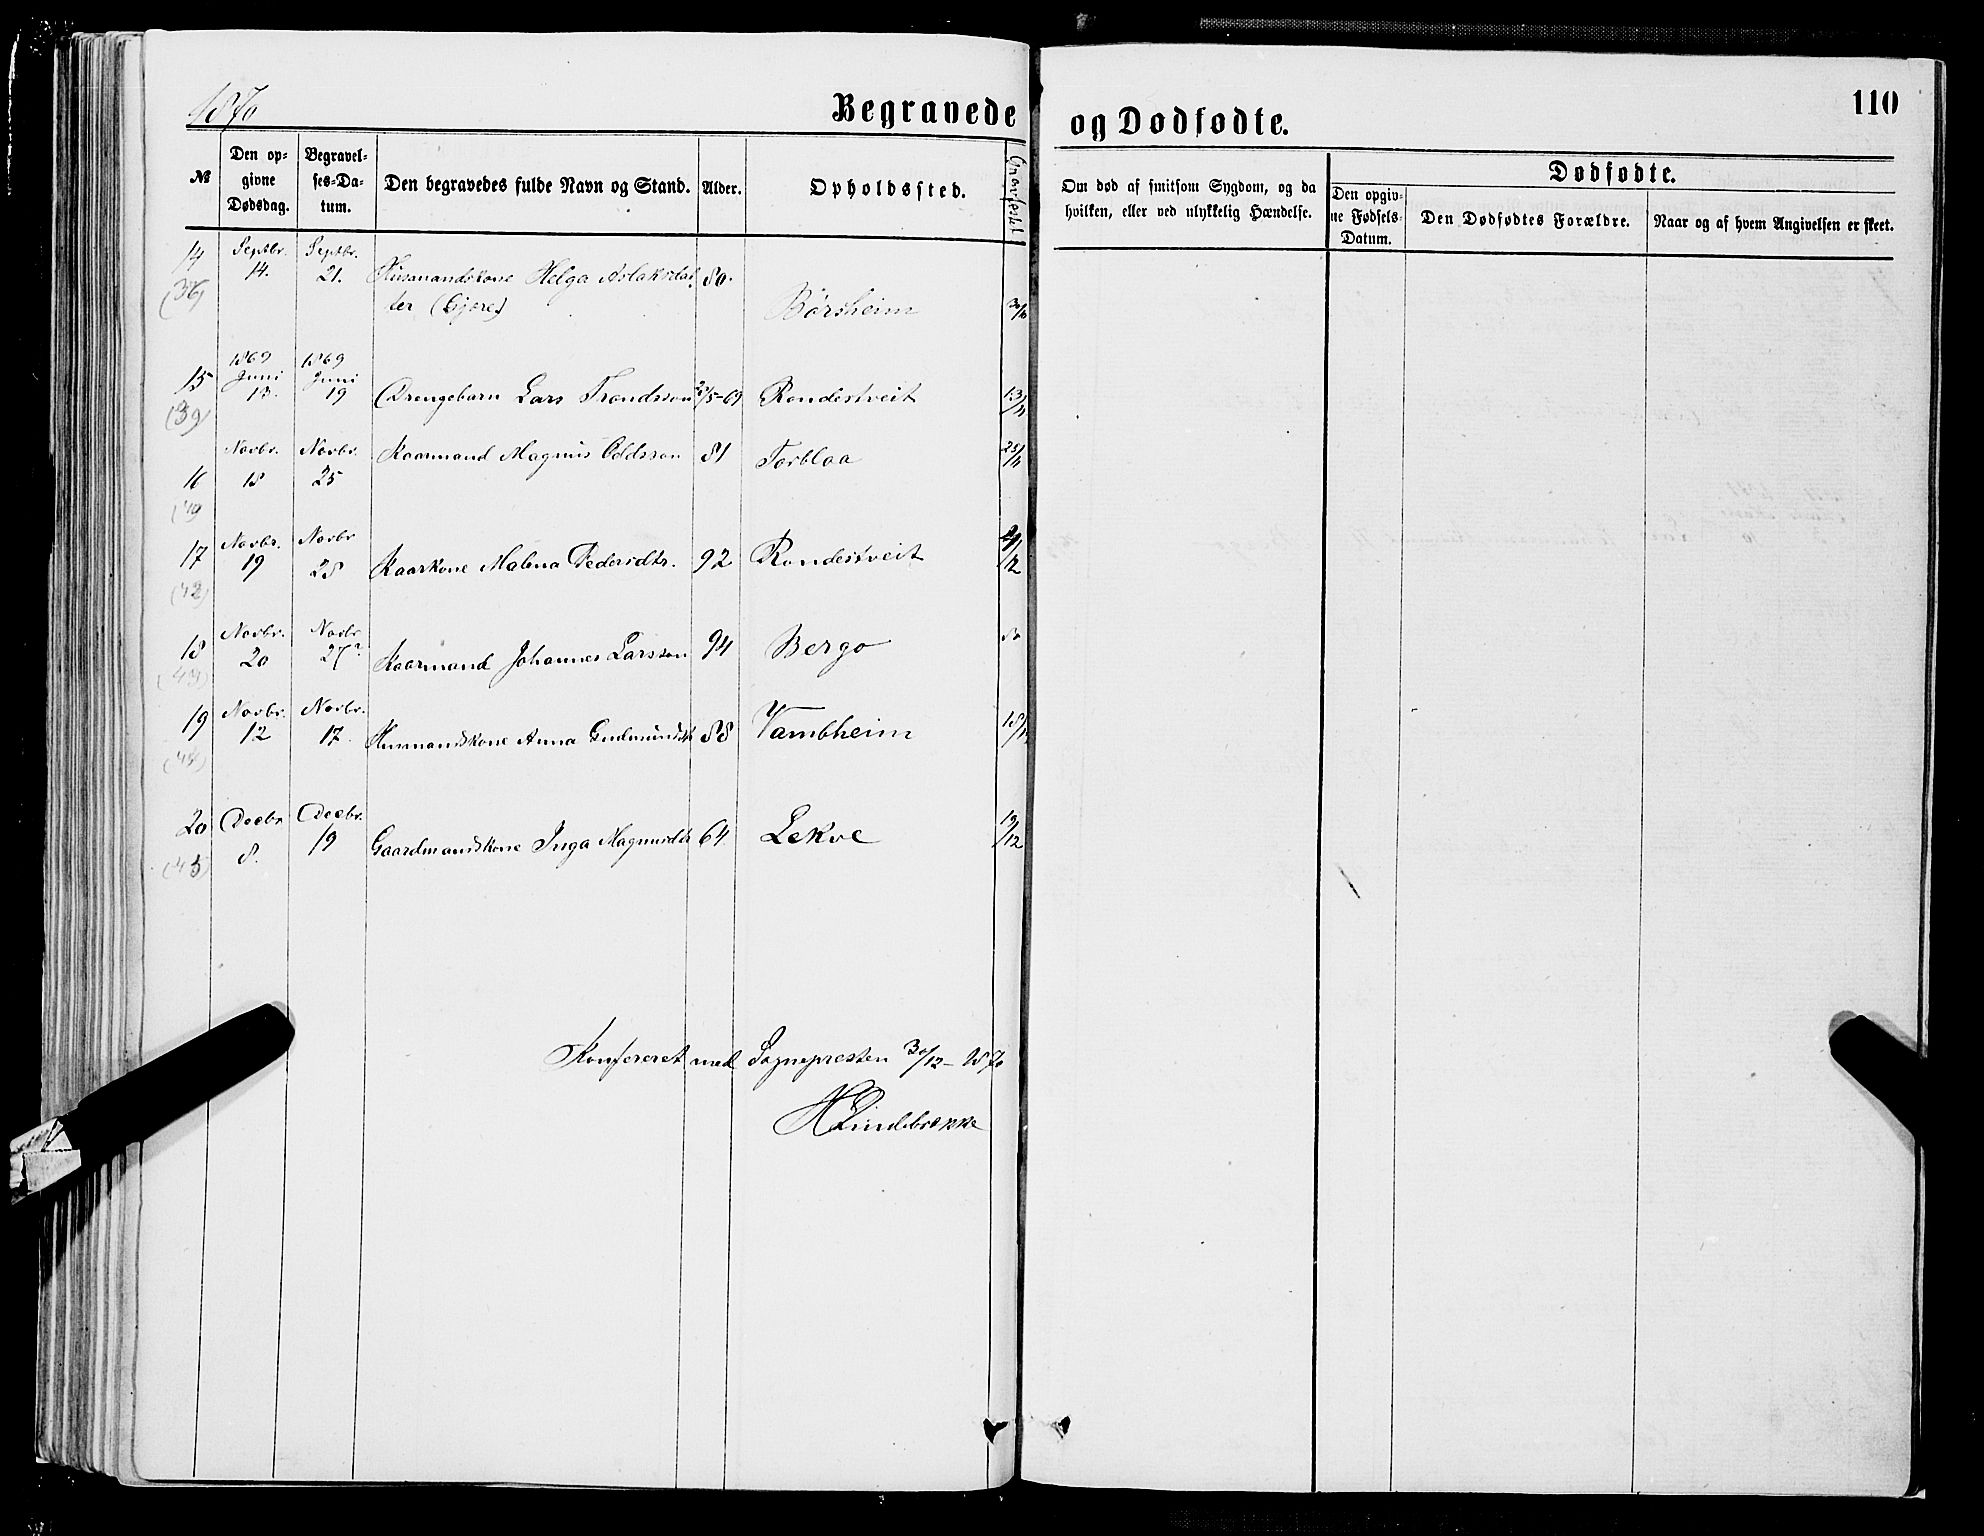 1870
Begravede
og Dødfødte.
110
№
Den op-
givne
Dødsdag.
Begravel-
ses-Da-
tum.
Den begravedes fulde Navn og Stand.
Alder.
Opholdssted.
Gravfæstet
Om død af smitsom Sygdom, og da
hvilken, eller ved ulykkelig Hændelse.
Dødfødte.
Den opgiv-
ne Fødsels-
Datum.
Den Dødfødtes Forældre.
Naar og af hvem Angivelsen er skeet.
14 Septbr. Septbr.
(36) 14. 21. Husmandskone Helga Aslaksdat 80.
ter (Gjøre) Børsheim 30/10
1869 1869
15 Juni Juni
(39) 13. 19 Drengebarn Lars Trondsson /5-69 Rondestveit 13/11
Novbr. Novbr. Kaarmand Magnus Oddsson 81 Torbloa 25/11
16 18 25
17 Novbr. Novbr
(42) 19 28 Kaarkone Malena Pedersdtr. 92 Rondestveit
18 Novbr. Novbr
(43) 20 27 Kaarmand Johannes Larsson 94 Bergo
19 Novbr. Novbr.
12 17. Husmandskone Anna Gudmundsdtr 88 Vambheim
20 Decbr Decbr.
(45) 8. 19 Gaardmandskone Inga Magnusdtr 64. Lekve 19/12
Konfereret med Sognepresten 30/12-1870
HLindebrekke